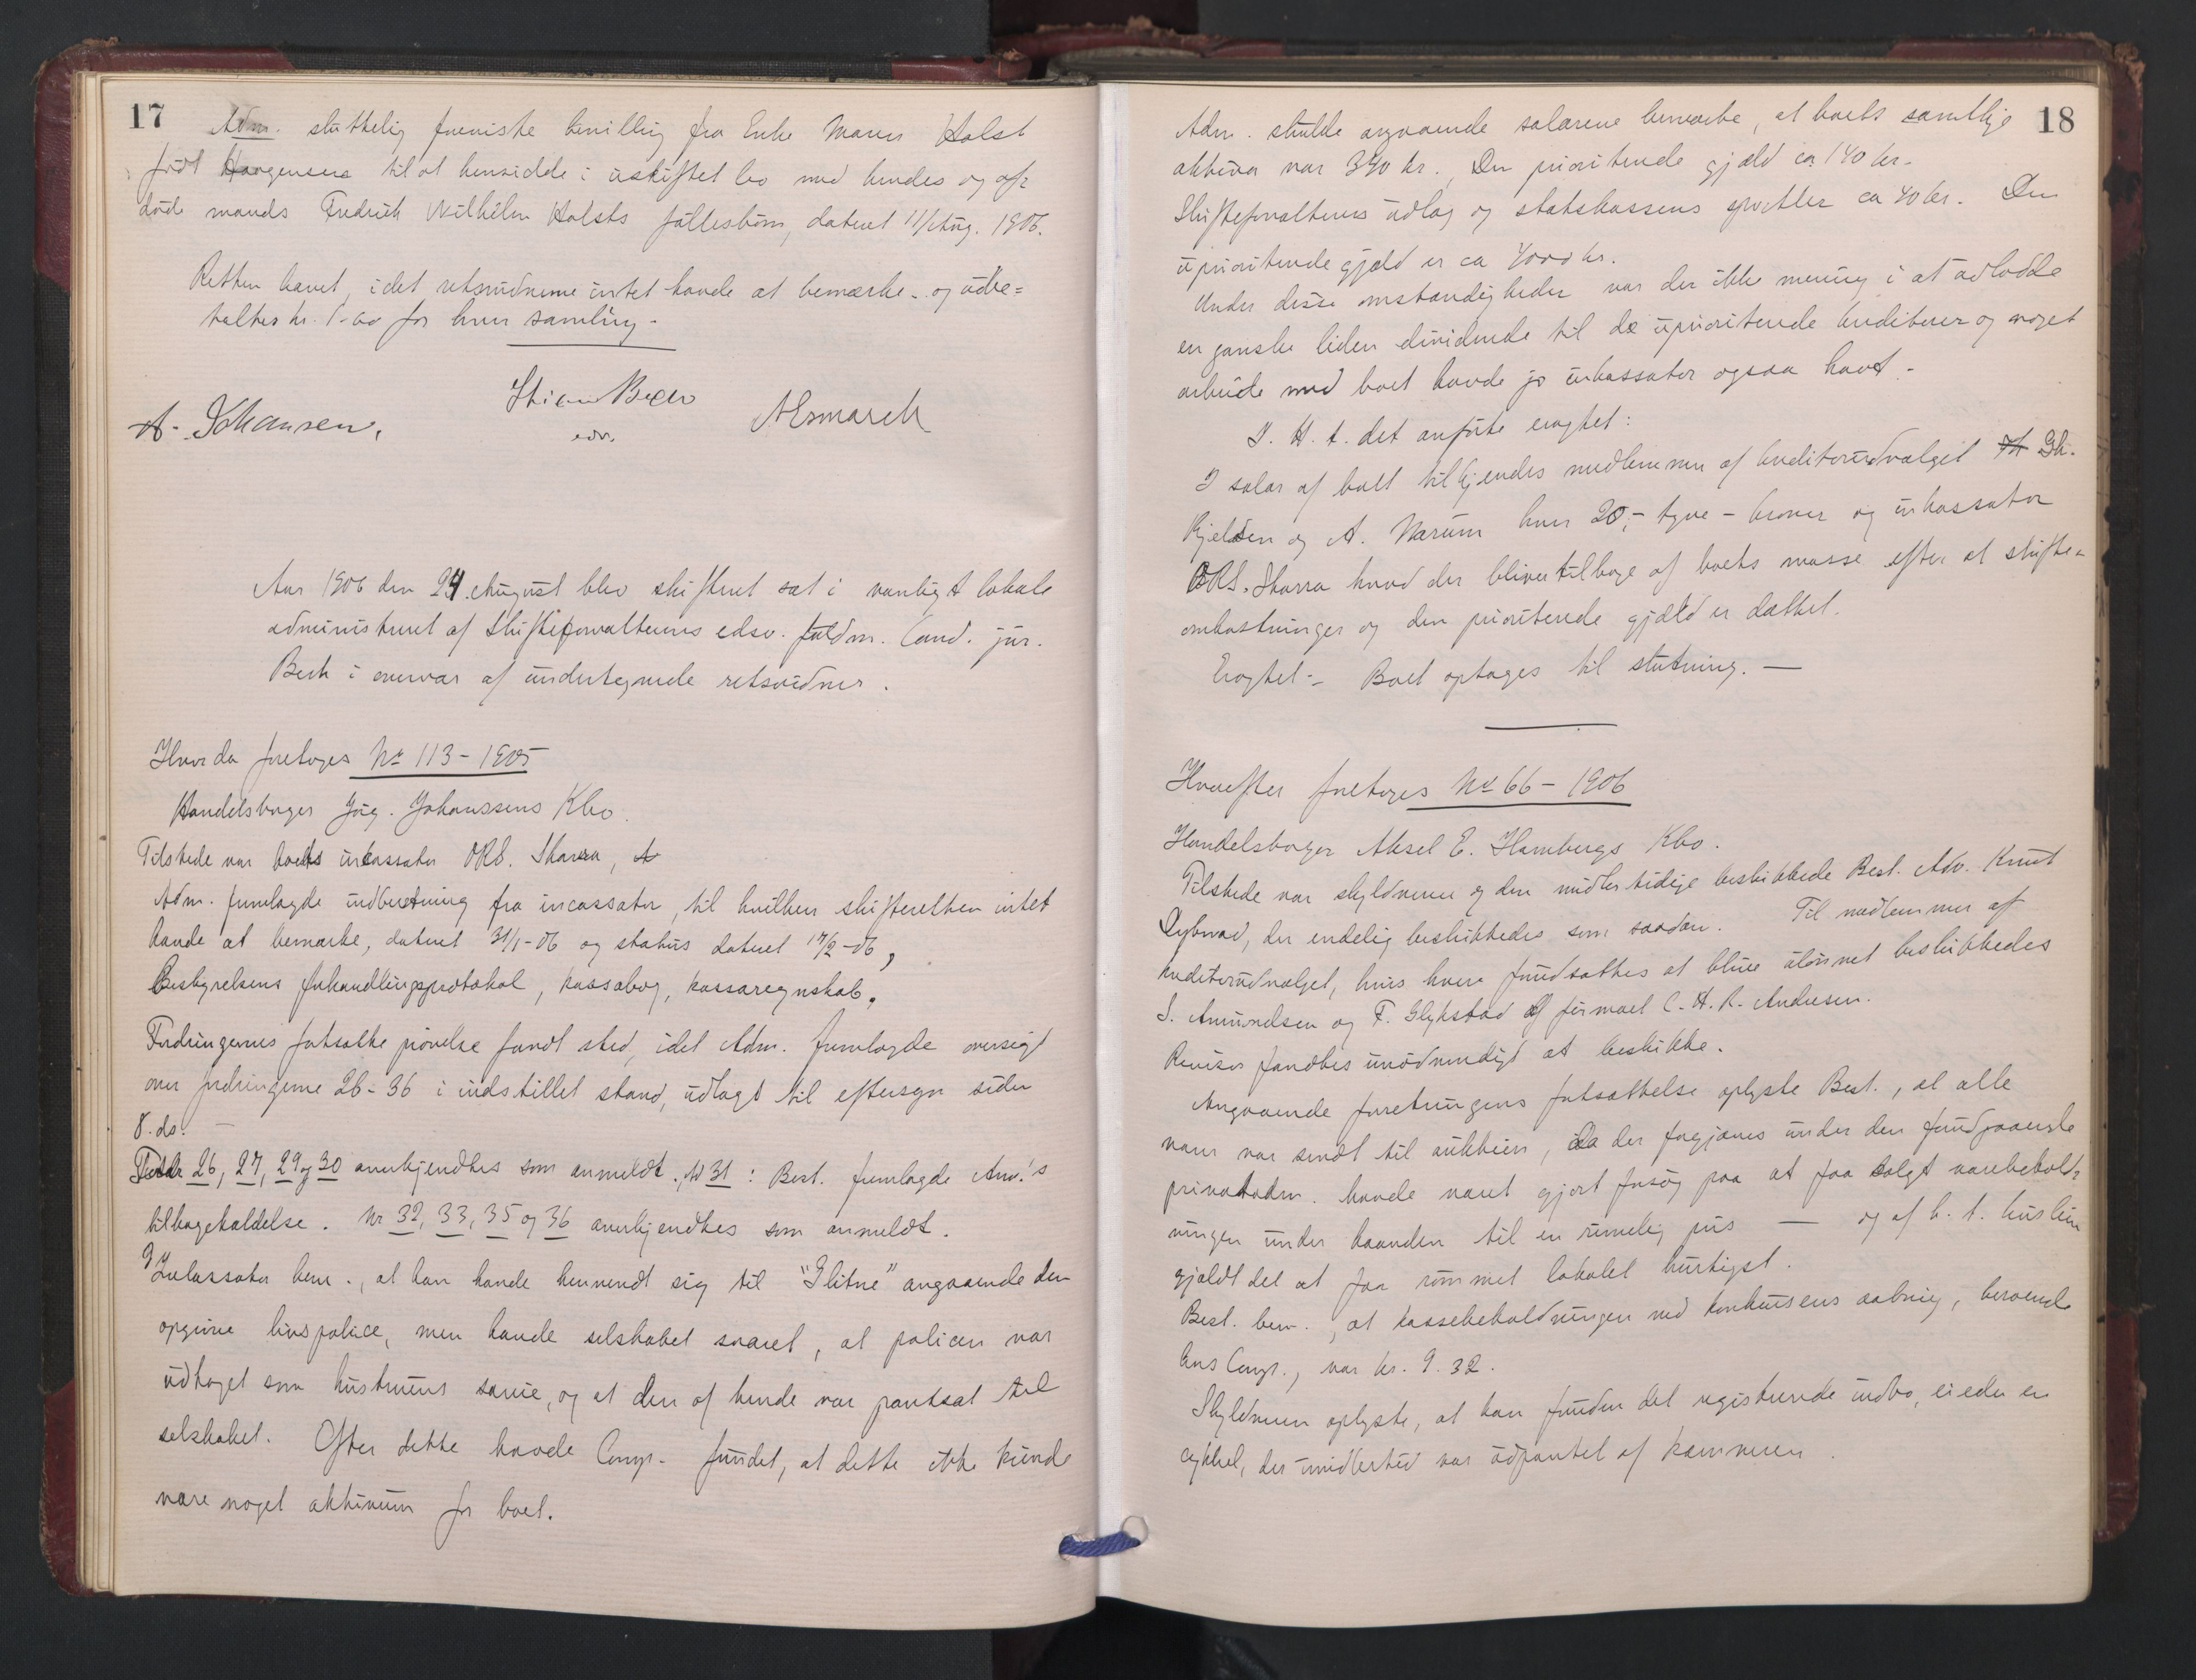 17
Adm. sluttelig fremviste bevilling fra Enke Maren Holst
født Haagensen til at hensidde i uskiftet bo med hendes og af=
døde mands Fredrik Wilhelm Holsts fællesbørn, dateret 11/Aug. 1906.
Retten hævet, idet retsvidnerne intet havde at bemærke - og udbe=
taltes kr. 1-00 for hver samling -
A. Johansen, A Esmarch
edsv.
Aar 1906 den 24. August blev skifteret sat i vanligt lokale
administreret af Skifteforvalterens edsv. fuldm. Cand. jur.
Beck i overvær af undertegnede retsvidner.
Hvorda foretoges No 113-1905
Handelsborger Jørg. Johanssens Kbo.
Tilstede var boets inkassator ORS. Skarra, A
Adm. fremlagde indberetning fra incassator, til hvilken skifteretten intet
havde at bemærke, dateret 31/1-06 og status dateret 17/2-06,
Bestyrelsens forhandlingsprotokol, kassabog, kassaregnskab.
Fordringernes fortsatte prøvelse fandt sted, idet Adm. fremlagde oversigt
over fordringerne 26-36 i indstillet stand, udlagt til eftersyn siden
8. ds. -
Fordr 26, 27, 29 og 30 anerkjendtes som anmeldt., No 31: Best. fremlagde Anm.'s
tilbagekaldelse. Nr 32, 33, 35 og 36 anerkjendtes som anmeldt.
Inkassator bem., at han havde henvendt sig til "Glitne" angaaende den
opgivne livspolice, men havde selskabet svaret, at policen var
udtaget som hustruens særeie, og at den af hende var pantsat til
selskabet. Efter dette havde Comp. fundet, at dette ikke kunde
være noget aktivum for boet.
18
Adm. skulde angaaende salærene bemærke, at boets samtlige
aktiva var 340 kr., Den prioriterede gjæld ca 140 kr.
Skifteforvalterens udlæg og statskassens sportler ca 40 kr. Den
uprioriterede gjæld er ca 4000 kr.
Under disse omstændigheder var der ikke mening i at udlodde
en ganske liden dividende til de uprioriterede kreditorer og noget
arbeide med boet havde jo inkassator ogsaa havt -
I. H. t. det anførte eragtet:
I salær af boet tilkjendes medlemmer af kreditorudvalget Chr.
Kjelsen og A. Narum hver 20,- tyve - kroner og inkassator
ORS. Skarra hvad der bliver tilbage af boets masse efter at skifte=
omkostninger og den prioriterede gjæld er dækket.
Eragtet:- Boet optages til slutning. -
Hvorefter foretoges No 66-1906
Handelsborger Aksel E. Hambergs Kbo.
Tilstede var skyldneren og den midlertidige beskikkede Best. Adv. Knut
Dybwad, der endelig beskikkedes som saadan. Til medlemmer af
kreditorudvalget, hvis hverv forudsattes at blive ulønnet beskikkedes
S. Amundsen og F. Glykstad af firmaet C. H. R. Andresen.
Revisor fandtes unødvendigt at beskikke.
Angaaende forretningens fortsættelse oplyste Best., at alle
varer var sendt til auktion, da der forgjæves under den forudgaaende
privatadm. havde været gjort forsøg paa at faa solgt varebehold=
ningen under haanden til en rimelig pris - og af h. t. husleie
gjaldt det at faa rømmet lokalet hurtigst.
Best. bem., at kassebeholdningen ved konkursens aabning, beroende
hos Comp., var kr. 9.32.
Skyldneren oplyste, at han foruden det registrerede indbo, eiede en
cykkel, der imidlertid var udpantet af kæmneren.